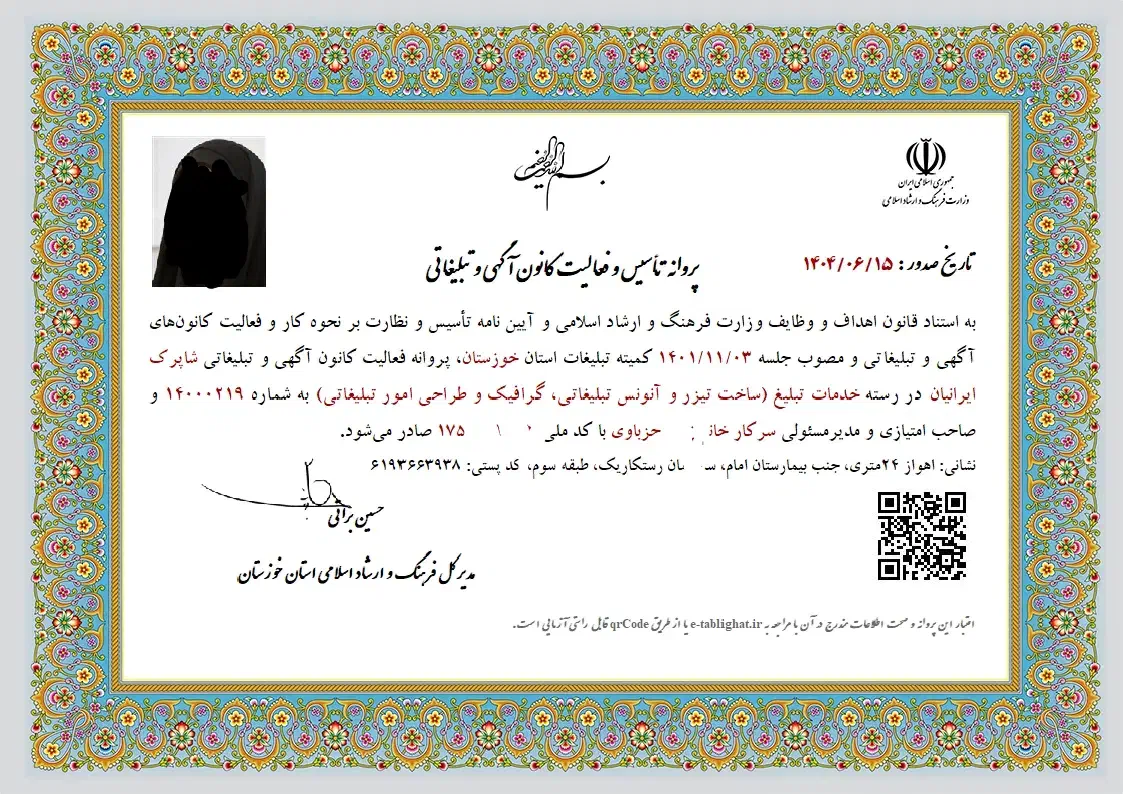 بسم الله الرحمن الرحیم
جمهوری اسلامی ایران
وزارت فرهنگ و ارشاد اسلامی
تاریخ صدور: ۱۴۰۴/۰۶/۱۵
پروانه تأسیس و فعالیت کانون آگهی و تبلیغاتی
به استناد قانون اهداف و وظایف وزارت فرهنگ و ارشاد اسلامی و آیین نامه تأسیس و نظارت بر نحوه کار و فعالیت کانون‌های
آگهی و تبلیغاتی و مصوب جلسه ۱۴۰۱/۱۱/۰۳ کمیته تبلیغات استان خوزستان، پروانه فعالیت کانون آگهی و تبلیغاتی شاپرک
ایرانیان در رسته خدمات تبلیغ (ساخت تیزر و آنونس تبلیغاتی، گرافیک و طراحی امور تبلیغاتی) به شماره ۱۴۰۰۰۲۱۹ و
صاحب امتیازی و مدیرمسئولی سرکار خانم حزباوی با کد ملی ۱۷۵ صادر می‌شود.
نشانی: اهواز ۲۴متری، جنب بیمارستان امام، رستکاریک، طبقه سوم، کد پستی: ۶۱۹۳۶۶۳۹۳۸
حسین براتی
مدیرکل فرهنگ و ارشاد اسلامی استان خوزستان
اعتبار این پروانه و صحت اطلاعات مندرج در آن با مراجعه به e-tablighat.ir یا از طریق qrCode قابل راستی آزمایی است.